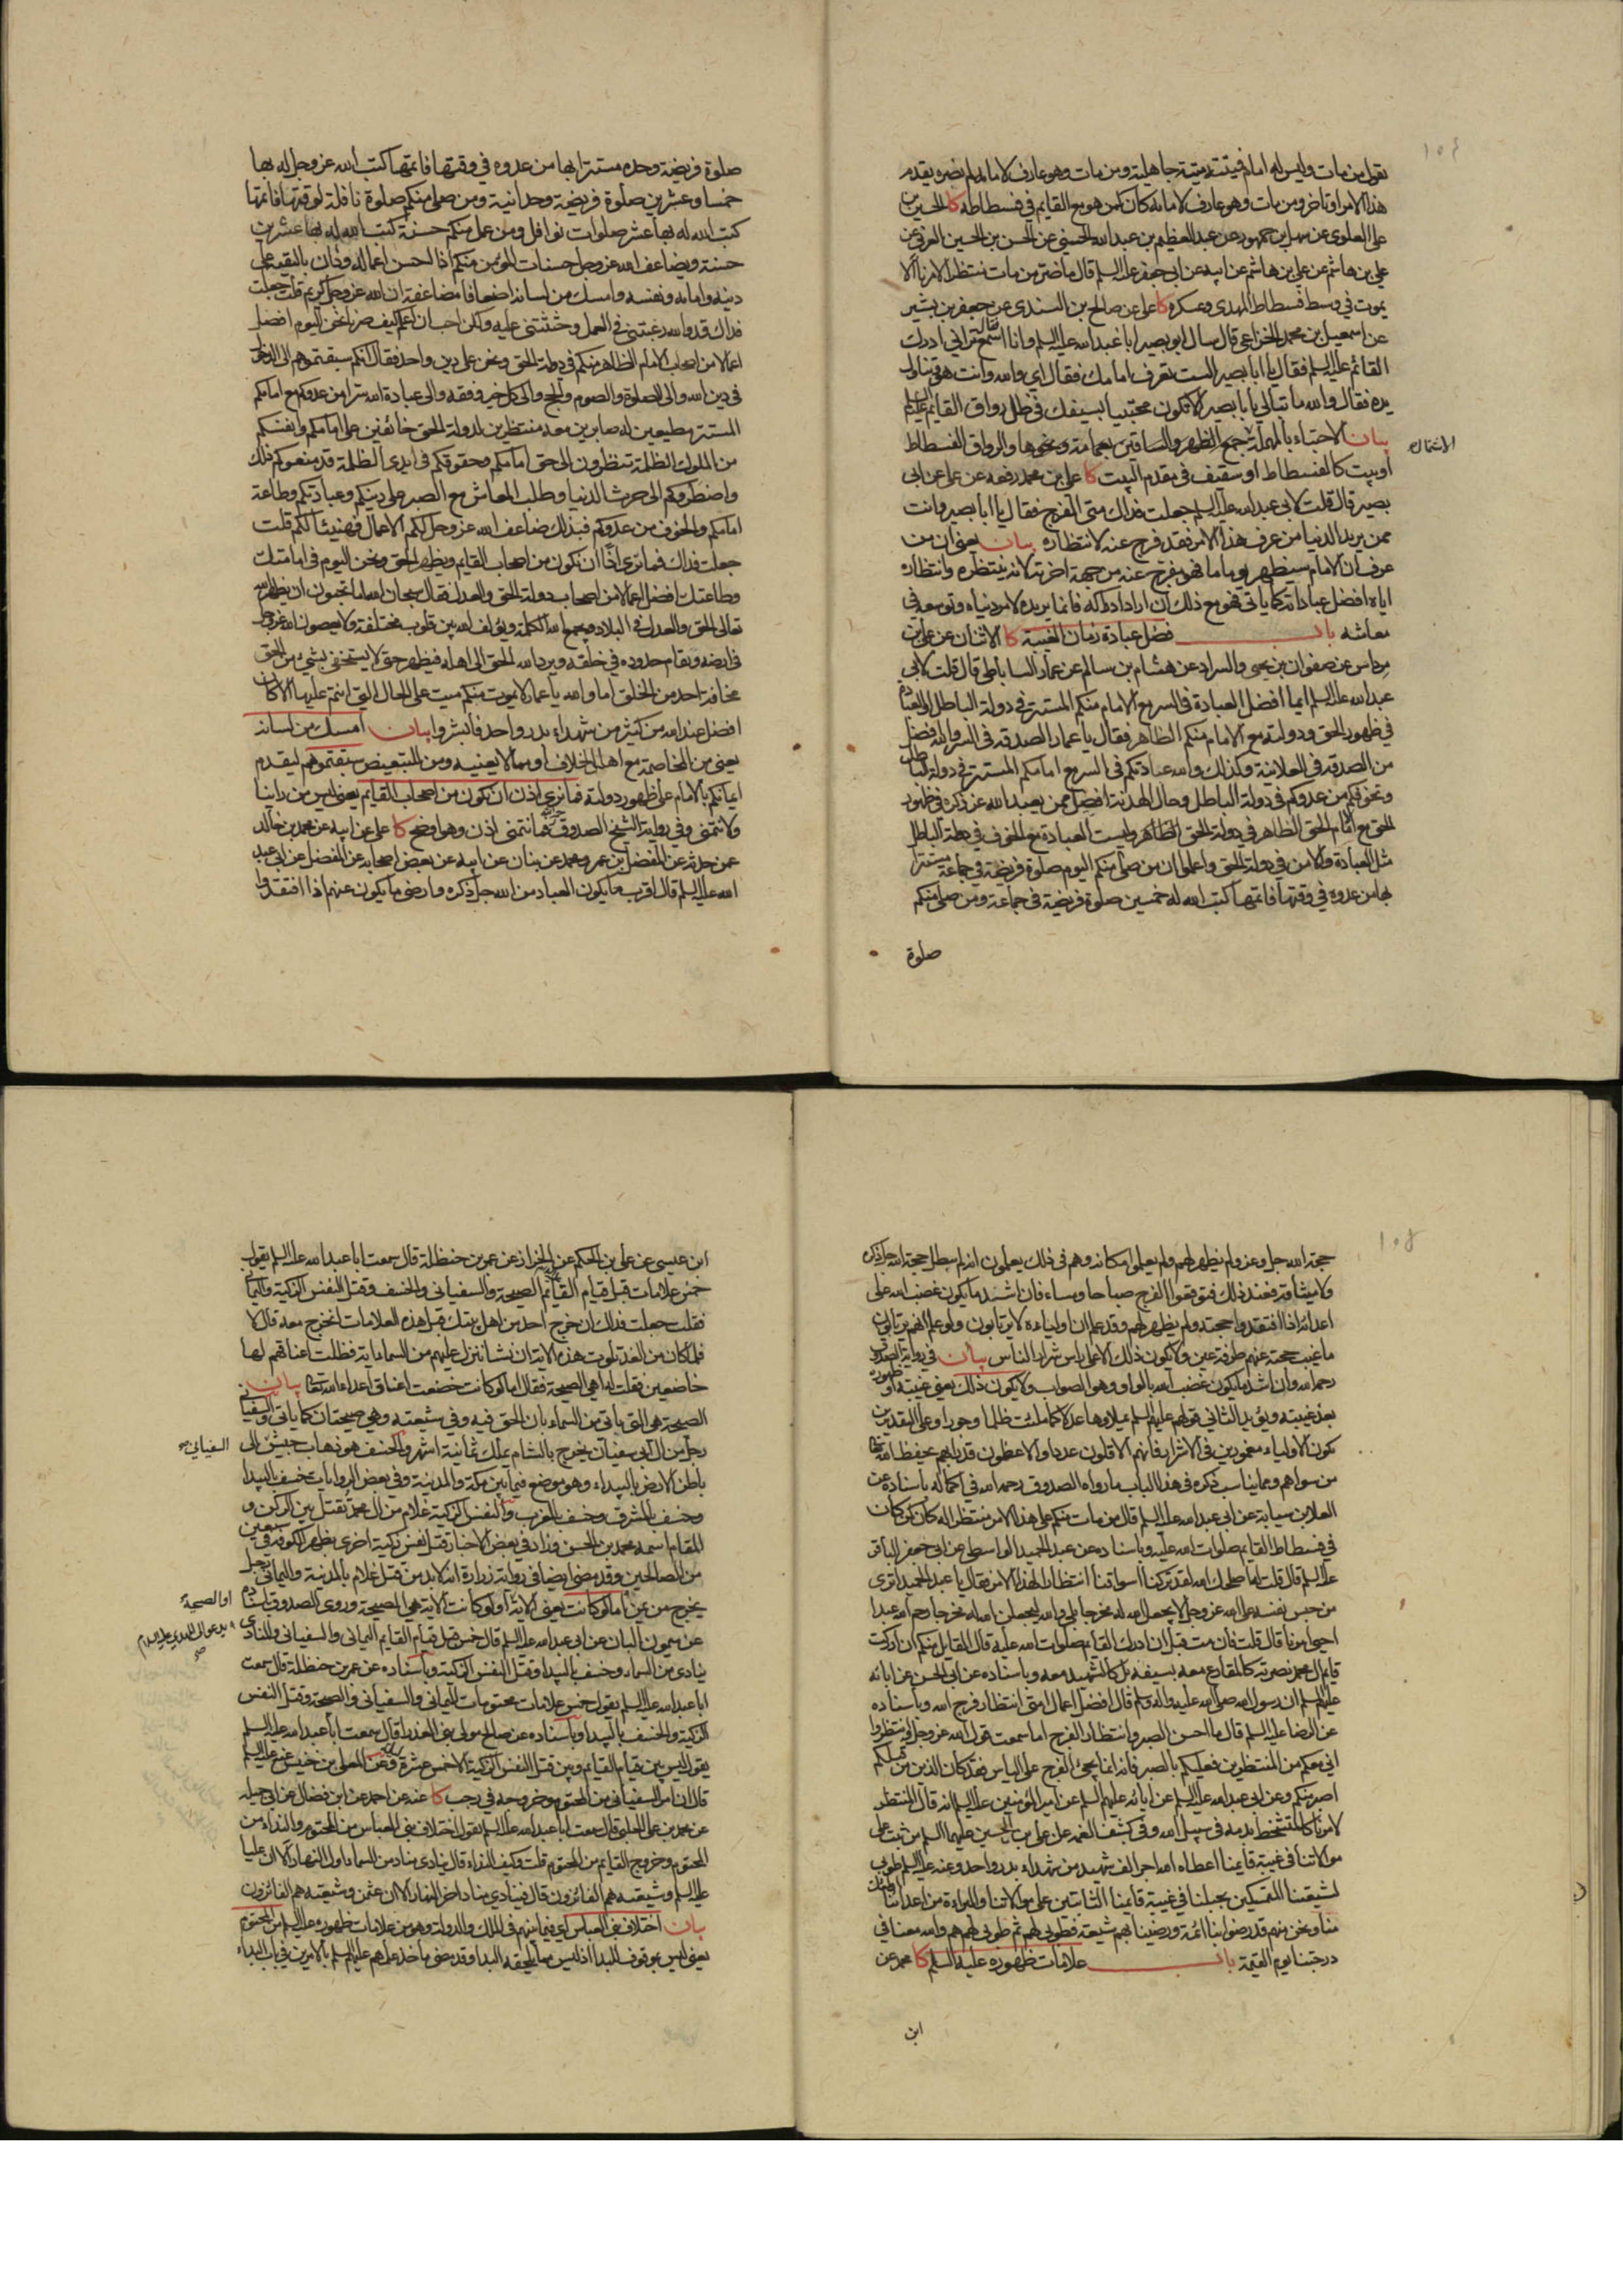 ١٠٤
يقول من مات وليس له امام فميتته ميتة جاهلية ومن مات وهو عارف لامامه لم يضره تقدم
هذا الامر او تاخر ومن مات وهو عارف لامامه كان كمن هو مع القايم في فسطاطه كا الحسين بن
على العلوى عن سهل بن جمهور عن عبد العظيم بن عبد الله الحسنى عن الحسن بن الحسين العرنى عن
علي بن هاشم عن ابيه عن ابى جعفر عليه السلم قال ما ضر من مات منتظرا لامرنا الا
يموت في وسط فسطاط المهدى وعسكره كا على عن صالح بن السندى عن جعفر بن بشير
عن اسمعيل بن محمد الخزاعى قال سال ابو بصير ابا عبد الله عليه السلم وانا اسمع تراني ادرك
القائم عليه السلم فقال يا ابا بصير الست تعرف امامك فقال اي والله وانت هو وتناول
يده فقال والله ما تبالى يا با بصير الا تكون محتبيا بسيفك في ظل رواق القايم عليه السلم
بيان الاحتباء بالمهملة جمع الظهر والساقين بعمامة ونحوها والرواق الفسطاط
او بيت كالفسطاط او سقيف في مقدم البيت كا على بن محمد رفعه عن على عن ابى
بصير قال قلت لابى عبد الله عليه السلم جعلت فداك متى الفرج فقال يا ابا بصير وانت
ممن يريد الدنيا من عرف هذا الامر فقد فرج عنه لانتظاره بيان يعنى ان من
عرف ان الامام سيظهر يوما ما فهو مفرج عنه من جهة اخرته لانه ينتظره وانتظاره
اياه افضل عباداته كما ياتى فهو مع ذلك ان اراد ادراكه فانما يريده لامر دنياه وتوسعه في
معاشه باب فضل عبادة زمان الغيبة كا الاثنان عن على بن
مرداس عن صفوان بن يحيى والسراد عن هشام بن سالم عن عمار الساباطى قال قلت لابى
عبد الله عليه السلم ايما افضل العبادة فى السر مع الامام منكم المستتر في دولة الباطل او العبادة
في ظهور الحق ودولته مع الامام منكم الظاهر فقال يا عمار الصدقة فى السر والله افضل
من الصدقة في العلانية وكذلك والله عبادتكم فى السر مع امامكم المستتر في دولة الباطل
وتخوفكم من عدوكم في دولة الباطل وحال الهدنة افضل ممن يعبد الله عز ذكره في ظهور
الحق مع امام الحق الظاهر في دولة الحق الظاهر وليست العبادة مع الخوف في دولة الباطل
مثل العبادة والامن في دولة الحق واعلموا ان من صلى منكم اليوم صلوة فريضة في جماعة مستترا
بها من عدوه في وقتها فاتمها كتب الله له خمسين صلوة فريضة فى جماعة ومن صلى منكم
صلوة
صلوة فريضة وحده مستترا بها من عدوه في وقتها فاتمها كتب الله عز وجل له بها
خمسا وعشرين صلوة فريضة وحدانية ومن صلى منكم صلوة نافلة لوقتها فاتمها
كتب الله له بها عشر صلوات نوافل ومن عمل منكم حسنة كتب الله له بها عشرين
حسنة ويضاعف الله عز وجل حسنات المؤمن منكم اذا احسن اعماله ودان بالتقية على
دينه وامامه ونفسه وامسك من لسانه اضعافا مضاعفة ان الله عز وجل كريم قلت جعلت
فداك قد والله رغبتنى في العمل وحثثتنى عليه ولكن احب ان اعلم كيف صرنا نحن اليوم افضل
اعمالا من اصحاب الامام الظاهر منكم في دولة الحق ونحن على دين واحد فقال انكم سبقتموهم الى الدخول
في دين الله والى الصلوة والصوم والحج والى كل خير وفقه والى عبادة الله سرا من عدوكم مع امامكم
المستتر مطيعين له صابرين معه منتظرين لدولة الحق خائفين على امامكم وانفسكم
من الملوك الظلمة تنظرون الى حق امامكم وحقوقكم في ايدى الظلمة قد منعوكم ذلك
واضطروكم الى حرث الدنيا وطلب المعاش مع الصبر على دينكم وعبادتكم وطاعة
امامكم والخوف من عدوكم فبذلك ضاعف الله عز وجل لكم الاعمال فهنيئا لكم قلت
جعلت فداك فما ترى اذا ان نكون من اصحاب القايم ويظهر الحق ونحن اليوم في امامتك
وطاعتك افضل اعمالا من اصحاب دولة الحق والعدل فقال سبحان الله اما تحبون ان يظهر الله
تعالى الحق والعدل فى البلاد ويجمع الله الكلمة ويؤلف الله بين قلوب مختلفة ولا يعصون الله عز وجل
في ارضه وتقام حدوده في خلقه ويرد الله الحق الى اهله فيظهر حتى لا يستخفى بشئ من الحق
مخافة احد من الخلق اما والله يا عمار لا يموت منكم ميت على الحال التى انتم عليها الا كان
افضل عند الله من كثير من شهداء بدر واحد فابشروا بيان امسك من لسانه
يعنى من المخاصمة مع اهل الخلاف او مما لا يعنيه ومن للتبعيض سبقتموهم لتقدم
ايمانكم بالامام على ظهور دولته فما ترى اذن ان نكون من اصحاب القايم يعنى ليس من راينا
ولا نتمنى وفي رواية الشيخ الصدوق فما نتمنى اذن وهو اوضح كا على عن ابيه عن محمد بن خالد
عمن حدثه عن المفضل بن عمر ومحمد عن بنان عن ابيه عن بعض اصحابه عن المفضل عن ابى عبد
الله عليه السلم قال اقرب ما يكون العباد من الله جل ذكره وارضى ما يكون عنهم اذا افتقدوا
١٠٥
حجة الله جل وعز ولم يظهر لهم ولم يعلموا مكانه وهم في ذلك يعلمون انه لم يبطل حجة الله جل ذكره
ولا ميثاقه فعند ذلك فتوقعوا الفرج صباحا ومساء فان اشد ما يكون غضب الله على
اعدائه اذا افتقدوا حجته ولم يظهر لهم وقد علم ان اولياءه لا يرتابون ولو علم انهم يرتابون
ما غيب حجته عنهم طرفة عين ولا يكون ذلك الا على راس شرار الناس بيان في رواية الصدوق
رحمه الله وان اشد ما يكون غضب الله بالواو وهو الصواب ولا يكون ذلك يعنى غيبته او ظهوره
بعد غيبته ويؤيد الثاني قولهم عليهم السلم يملاوها عدلا كما ملئت ظلما وجورا وعلى التقديرين
يكون الاولياء مغمورين فى الاشرار فانهم الاقلون عددا والاعظمون قدرا بهم يحفظ الله تعالى
من سواهم ومما يناسب ذكره فى هذا الباب ما رواه الصدوق رحمه الله في اكماله باسناده عن
العلا بن سيابة عن ابى عبد الله عليه السلم قال من مات منكم على هذا الامر منتظرا له كان كمن كان
في فسطاط القايم صلوات الله عليه وباسناده عن عبد الحميد الواسطى عن ابى جعفر الباقر
عليه السلم قال قلت له اصلحك الله لقد تركنا اسواقنا انتظارا لهذا الامر فقال يا عبد الحميد اترى
من حبس نفسه على الله عز وجل لا يجعل الله له مخرجا بلى والله ليجعلن الله له مخرجا رحم الله عبدا
احيا امرنا قال قلت فان مت قبل ان ادرك القايم صلوات الله عليه قال القايل منكم ان ادركت
قايم ال محمد نصرته كالمقارع معه بسيفه بل كالشهيد معه وباسناده عن ابى الحسن عن ابائه
عليهم السلم ان رسول الله صلى الله عليه واله وسلم قال افضل اعمال امتى انتظار فرج الله وباسناده
عن الرضا عليه السلم قال ما احسن الصبر وانتظار الفرج اما سمعت قول الله عز وجل فانتظروا
انى معكم من المنتظرين فعليكم بالصبر فانه انما يجئ الفرج على الياس فقد كان الذين من قبلكم
اصبر منكم وعن ابى عبد الله عليه السلم عن ابائه عليهم السلم عن امير المؤمنين عليه السلم انه قال المنتظر
لامرنا كالمتشحط بدمه في سبيل الله وفي كشف الغمة عن على بن الحسين عليهما السلم من ثبت على
موالاتنا في غيبة قايمنا اعطاه الله اجر الف شهيد من شهداء بدر واحد وعنه عليه السلم طوبى
لشيعتنا المتمسكين بحبلنا في غيبة قايمنا الثابتين على موالاتنا والبراءة من اعدائنا اولئك
منا ونحن منهم قد رضوا بنا ائمة ورضينا بهم شيعة فطوبى لهم ثم طوبى لهم هم والله معنا في
درجتنا يوم القيمة باب علامات ظهوره عليه السلم كا محمد عن
ابن
ابن عيسى عن على بن الحكم عن الخزاز عن عمر بن حنظلة قال سمعت ابا عبد الله عليه السلم يقول
خمس علامات قبل قيام القائم الصيحة والسفيانى والخسف وقتل النفس الزكية واليمانى
فقلت جعلت فداك ان خرج احد من اهل بيتك قبل هذه العلامات انخرج معه قال لا
فلما كان من الغد تلوت هذه الاية ان نشا ننزل عليهم من السماء اية فظلت اعناقهم لها
خاضعين فقلت له اهى الصيحة فقال اما لو كانت خضعت اعناق اعداء الله تعالى بيان
الصيحة هى التى تاتى من السماء بان الحق فيه وفي شيعته وهي صيحتان كما ياتى والسفيانى
رجل من ال ابى سفيان يخرج بالشام يملك ثمانية اشهر والخسف هو ذهاب جيش الى
السفيانى
باطن الارض بالبيداء وهو موضع فيما بين مكة والمدينة وفي بعض الروايات خسف بالبيداء
وخسف بالمشرق وخسف بالمغرب والنفس الزكية غلام من ال محمد يقتل بين الركن و
المقام اسمه محمد بن الحسن وزاد في بعض الاخبار قتل نفس زكية اخرى بظهر الكوفة في سبعين
من الصالحين وقد مضى ايضا فى رواية زرارة انه لابد من قتل غلام بالمدينة واليمانى رجل
يخرج من يمن اما لو كانت يعنى الاية او لو كانت الاية هى الصيحة وروى الصدوق باسناده
او الصيحة
عن ميمون البان عن ابى عبد الله عليه السلم قال خمس قبل قيام القايم اليمانى والسفيانى والمنادى
ينادى من السماء وخسف بالبيداء وقتل النفس الزكية وباسناده عن عمر بن حنظلة قال سمعت
ابا عبد الله عليه السلم يقول خمس علامات محتومات اليمانى والسفيانى والصيحة وقتل النفس
الزكية والخسف بالبيداء وباسناده عن صالح مولى بنى العذراء قال سمعت ابا عبد الله عليه السلم
يقول ليس بين قيام القايم وبين قتل النفس الزكية الا خمس عشرة ليلة وعن المعلى بن خنيس عنه عليه السلم
قال ان امر السفيانى من المحتوم وخروجه في رجب كا عنه عن احمد عن ابن فضال عن ابى جميلة
عن محمد بن على الحلبى قال سمعت ابا عبد الله عليه السلم يقول اختلاف بنى العباس من المحتوم والنداء من
المحتوم وخروج القايم من المحتوم قلت وكيف النداء قال ينادى مناد من السماء اول النهار الا ان عليا
عليه السلم وشيعته هم الفائزون قال وينادي مناد اخر النهار الا ان عثمن وشيعته هم الفائزون
بيان اختلاف بنى العباس اي فيما بينهم فى الملك والدولة وهو من علامات ظهوره عليه السلم من المحتوم
يعنى ليس بموقوف للبدا اذ ليس مما يلحقه البداء وقد مضى ماخذ علمهم عليهم السلم بالامرين في باب البداء